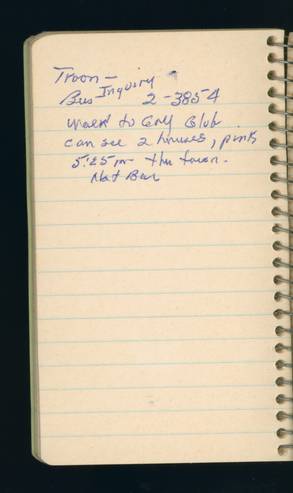 Troon –
Bus Inquiry
2-3854
Walk to Golf Club
can see 2 houses, pink
5:25 pm – thru town.